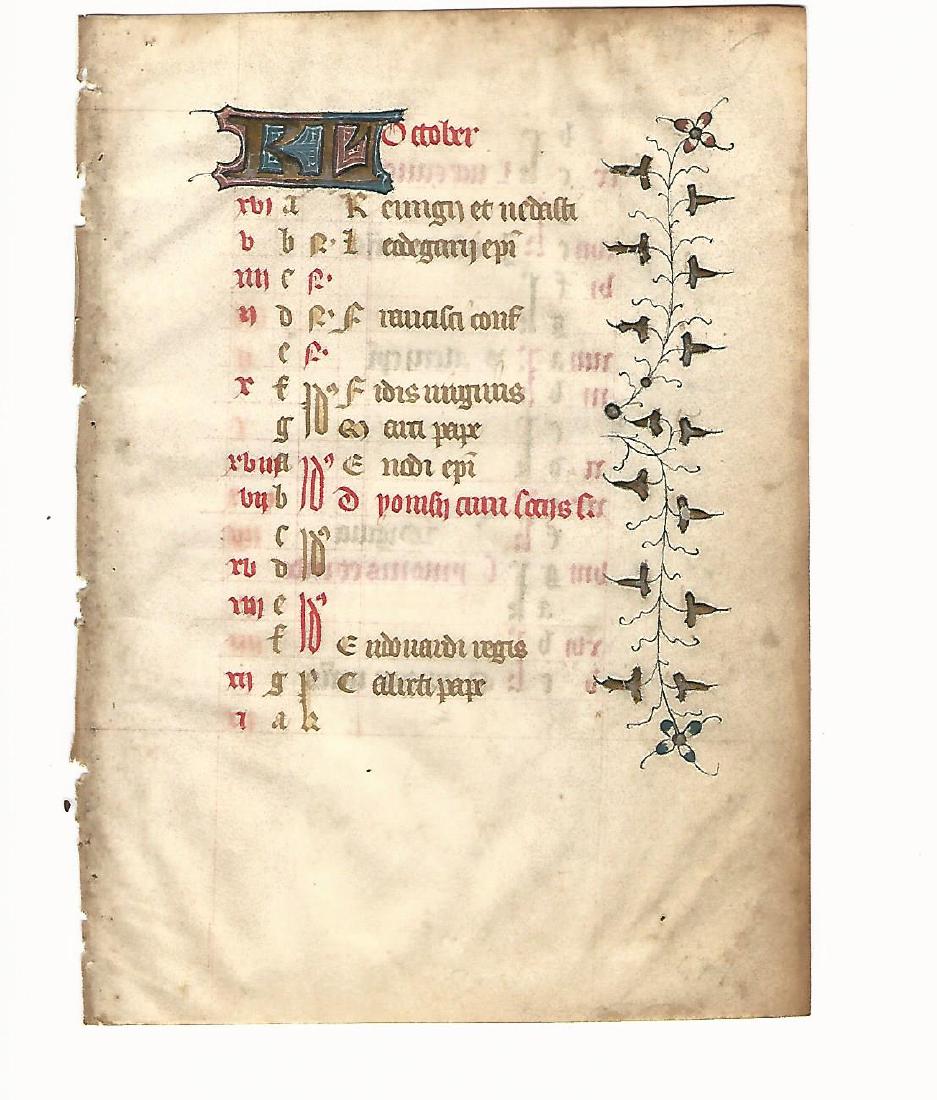 KL October
xvi a Remigij et vedasti
v b N. Leodegarij epi
iiij c N.
ij d N. Francisci conf
e N.
x f Fidis virginis
g Marci pape
xviij a Enedi epi
vij b Dyonisij cum socijs
c
xv d
iiij e
f Edwardi regis
xij g Calixti pape
i a k